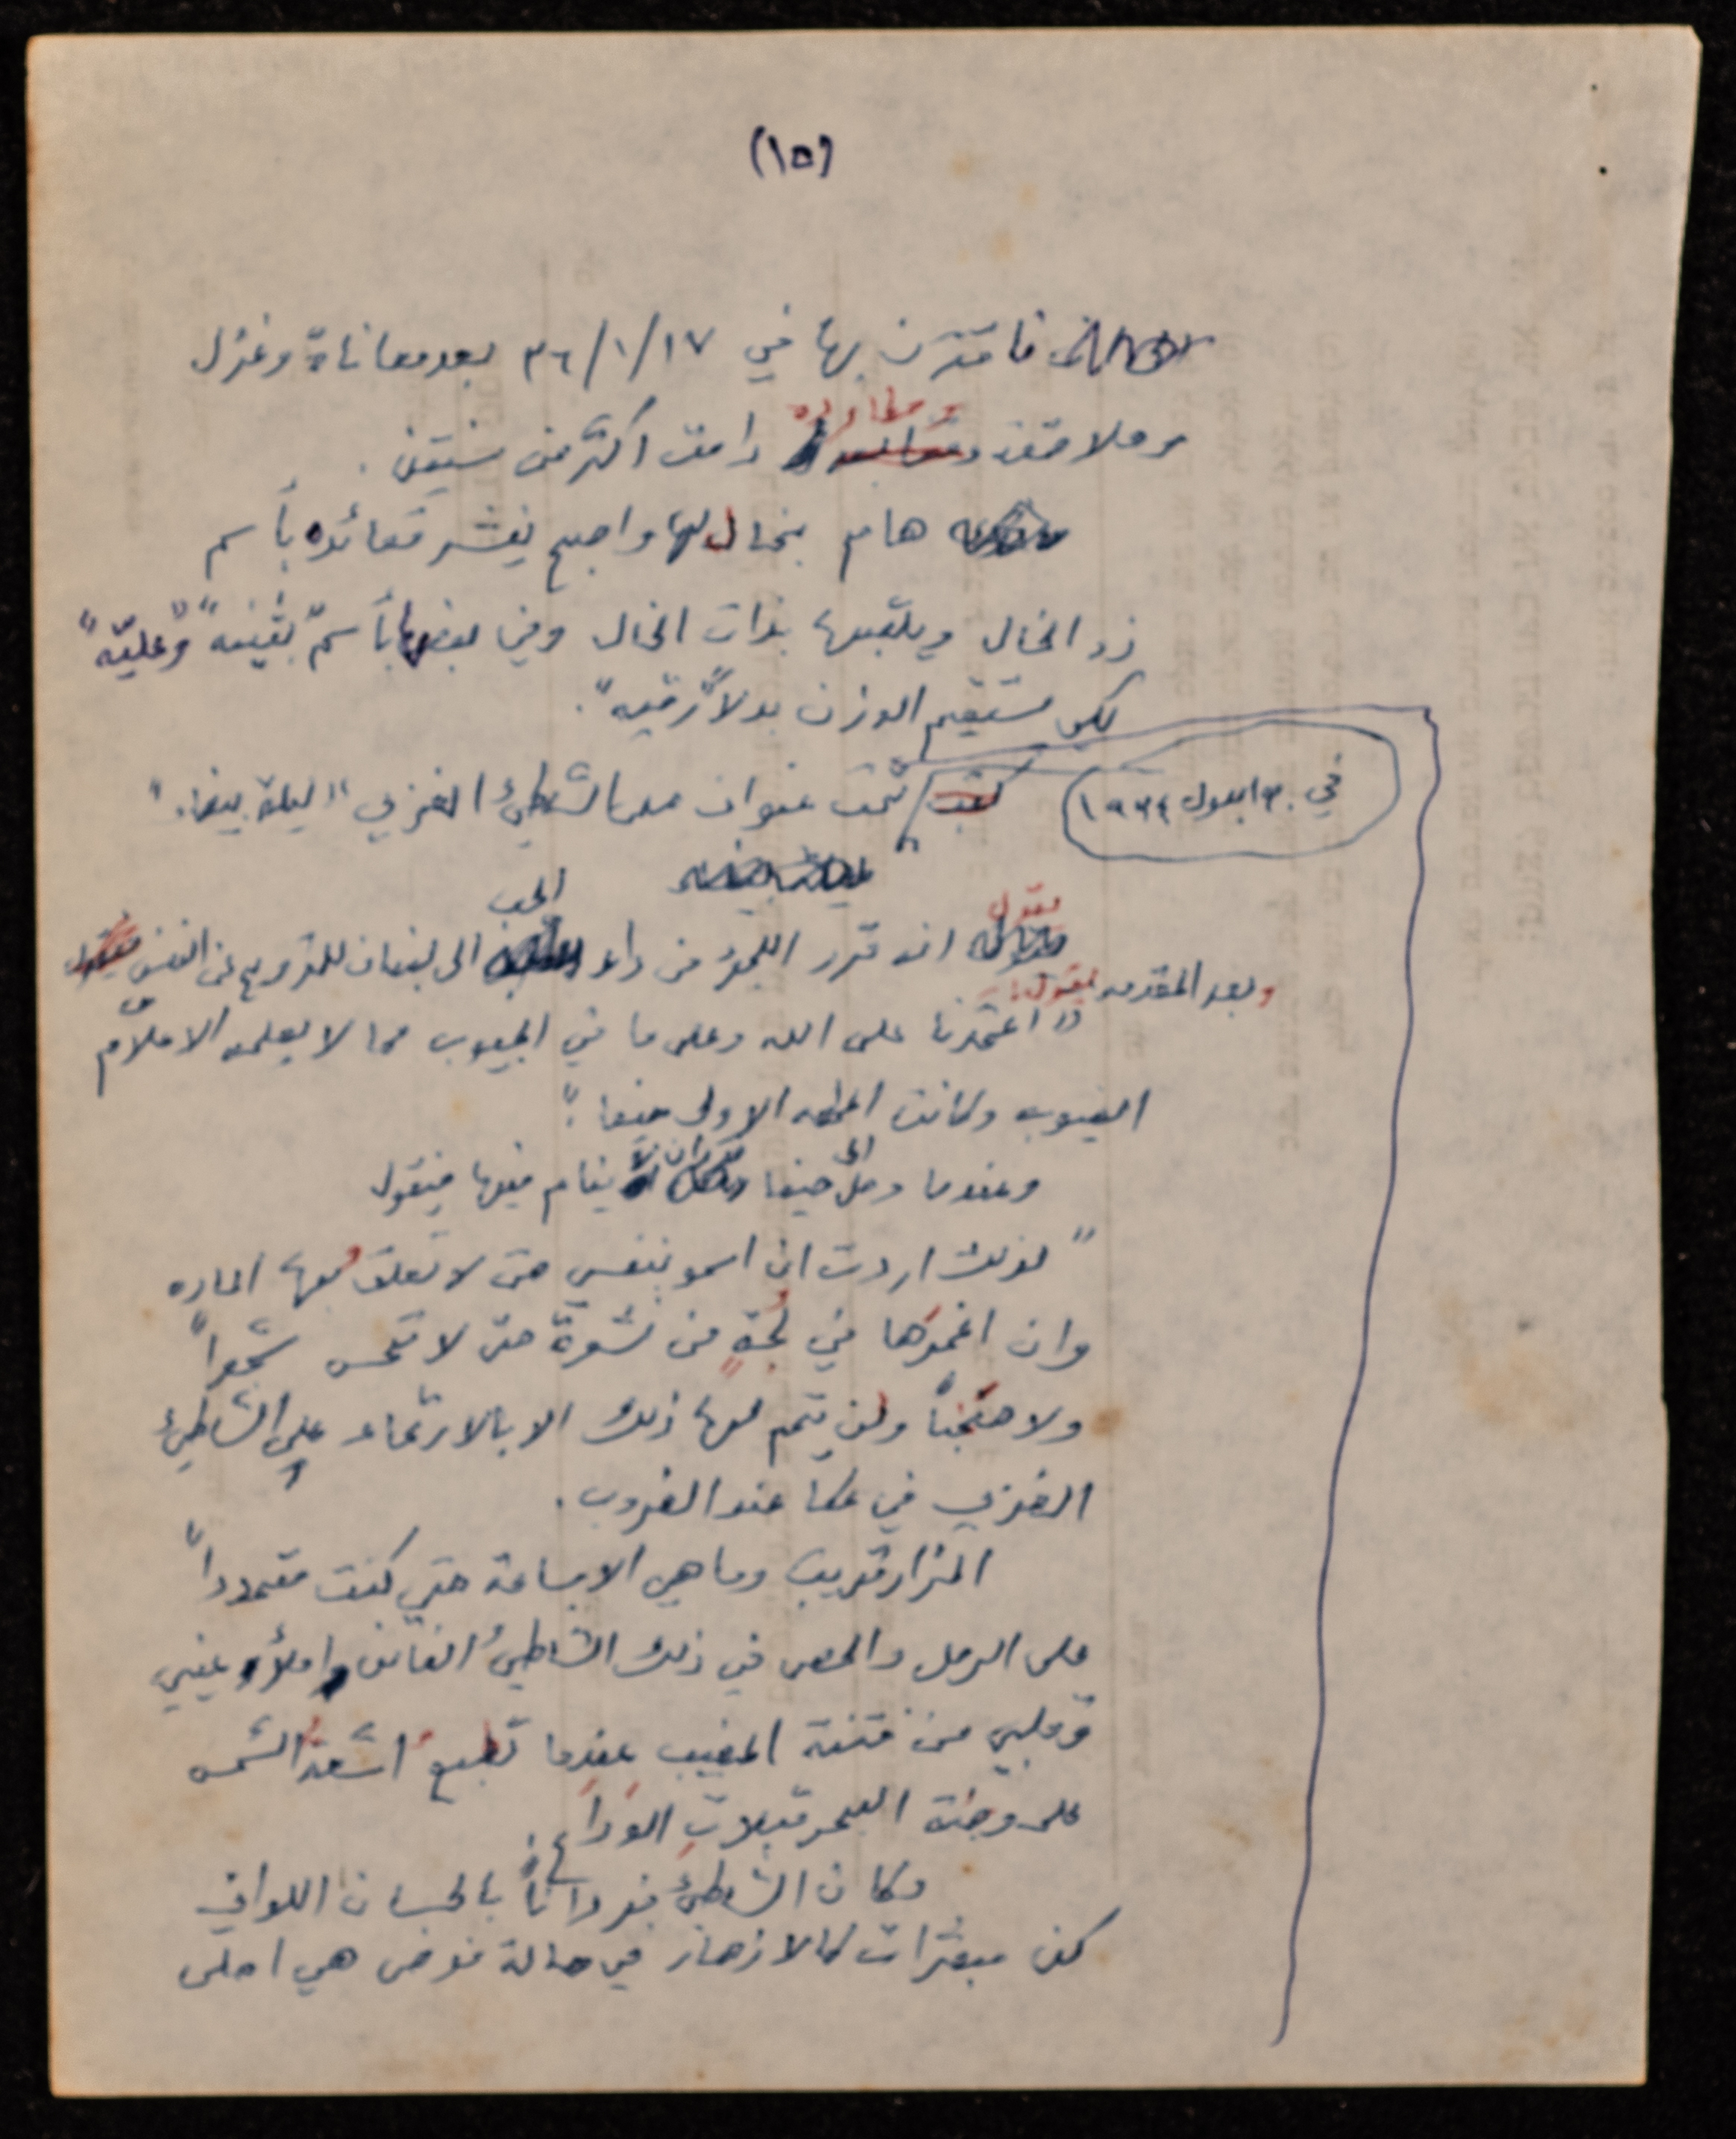 (١٥)
فاقترن بها في ٣٦/١/١٧ بعد معاناة وغزل
وملاحقة ومطارده دامت اكثر من سنتين .
هام بخالها واصبح ينشر قصائده بأسم
ذو الخال ويلقبها بذات الخال وفي بعضها بأسم "بثينه" و"عليّه"
لكي يستقيم الوزن بدلاً "رقيه" .
في ٣٠ ايلول ١٩٣٤ كتب تحت عنوان على الشاطئ الغربي "ليلة بيضاء"
يقول انه قرر اللجوء من داء الحب الى لبنان للترويح عن النفس
وبعد المقدمه يقول :
"اعتمدنا على الله وعلى ما في الجيوب مما لا يعلمه الا علاّم
الغيوب وكانت المحطه الاولى حيفا "
وعندما وصل الى حيفا قرر ان لا ينام فيها فيقول
"لذلك اردت ان اسمو بنفسي حتى لا تعلق بها الماده
وان اغمرَها في لُجةٍ من نشوة حتى لا تحس شجواً
ولا شجناً ولن يتم لها ذلك الا بالارتماء على الشاطئ
الغربي في عكا عند الغروب .
المزار قريب وما هي الا ساعة حتى كنت متمدداً
على الرمل والحصى في ذلك الشاطئ الفاتن واملأ عيني
وقلبي من فتنة المغيب عندما تطبع اشعة الشمس
على وجنة البحر قبلات الوداع .
وكان الشاطئ مزداناً بالحسان اللواتي
كن مبعثرات كالازهار في حالة فوضى هي احلى